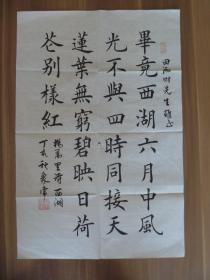 畢竟西湖六月中風
光不與四時同接天
蓮葉無窮碧映日荷
花别樣紅
楊萬里詩西湖
丁亥秋